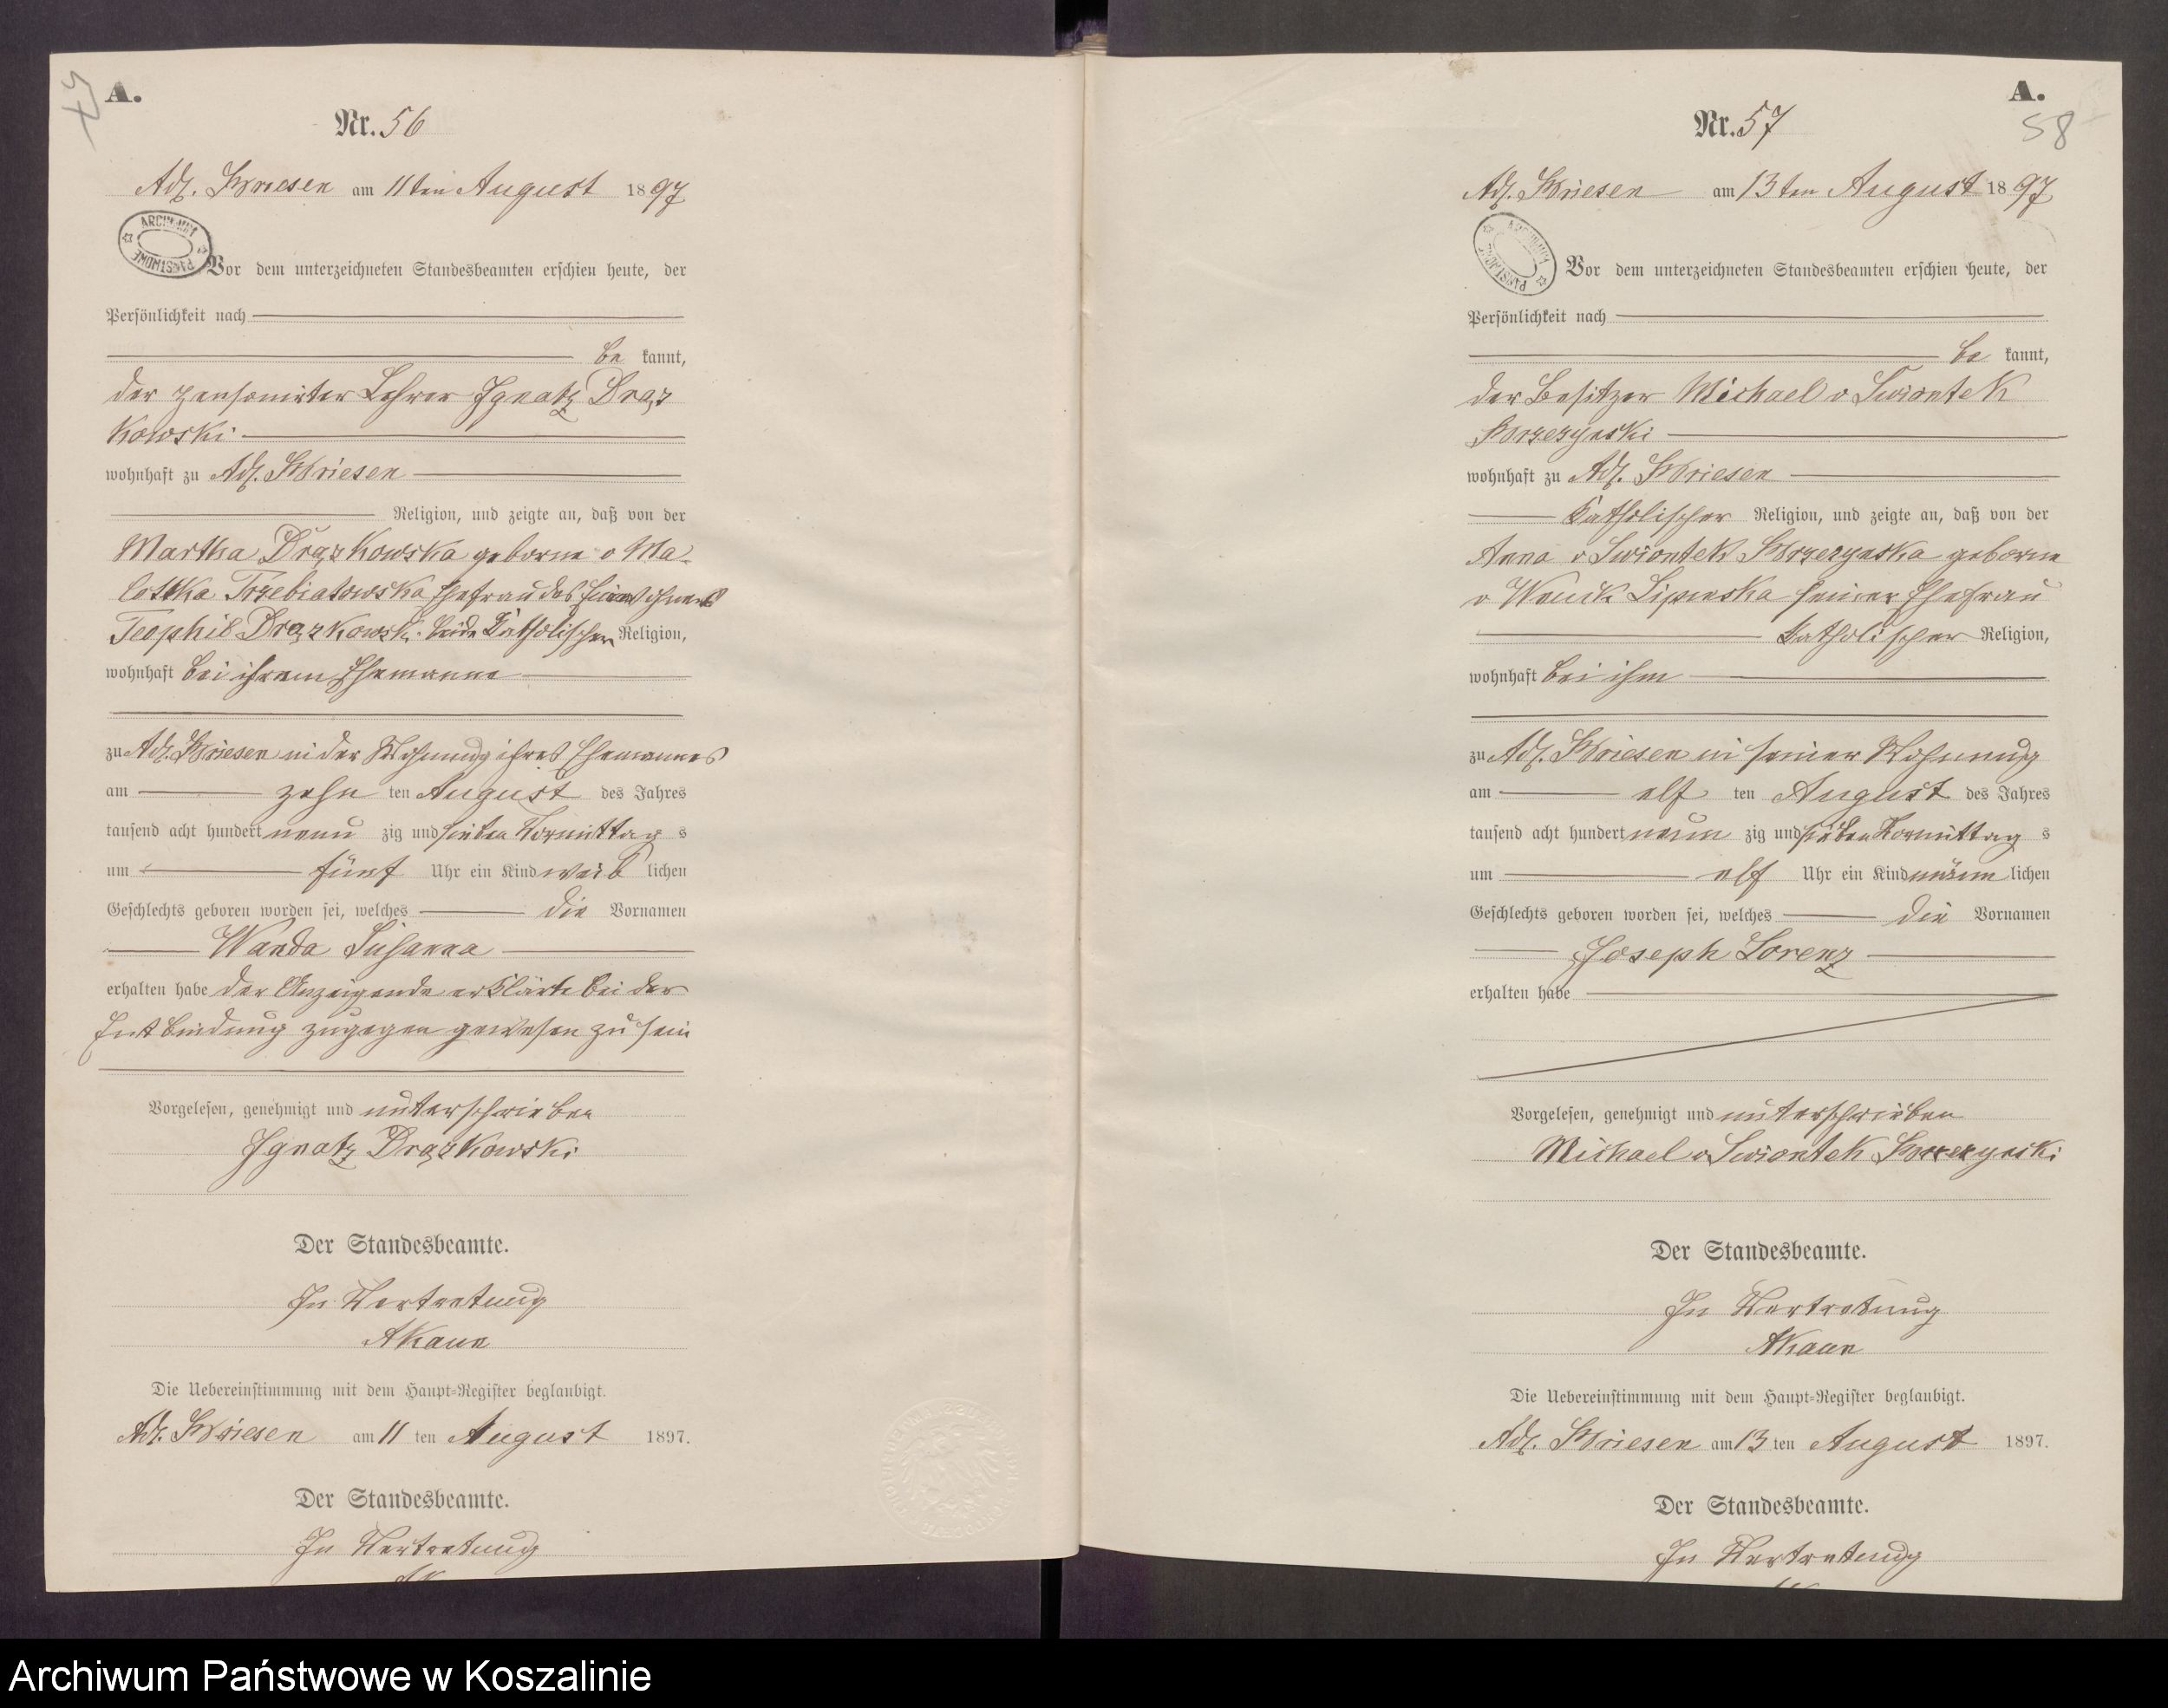 57
A.
Nr. 56
Adl. Briesen am 11ten August 1897
ARCHIWUM PAŃSTWOWE
Vor dem unterzeichneten Standesbeamten erschien heute, der
Persönlichkeit nach
be kannt,
der pensonirter Lehrer Ignatz Drąz
Kowski
wohnhaft zu Adl. Briesen
Religion, und zeigte an, daß von der
Martha DrązKowska geborne v Ma-
lottKa TrzebiatowsKa Ehefrau des Einwohners
Teophil DrązKowski beide Katholischer Religion,
wohnhaft bei ihrem Ehemanne
zu Adl. Briesen in der Wohnung ihres Ehemannes
am zehn ten August des Jahres
tausend acht hundert neun zig und sieben Vormittag s
um fünf Uhr ein Kind weib lichen
Geschlechts geboren worden sei, welches die Vornamen
Wanda Susanna
erhalten habe der Anzeigende erklärte bei der
Entbindung zugegen gewesen zu sein
Vorgelesen, genehmigt und unterschrieben
Ignatz DrązKowski
Der Standesbeamte.
In Vertretung
AKaun
Die Uebereinstimmung mit dem Haupt-Register beglaubigt.
Adl. Briesen am 11 ten August 1897.
Der Standesbeamte.
In Vertretung
A.
58
Nr. 57
Adl. Briesen am 13ten August 1897
ARCHIWUM PAŃSTWOWE
Vor dem unterzeichneten Standesbeamten erschien heute, der
Persönlichkeit nach
be kannt,
der Besitzer Michael v Swiontek
Brzezynski
wohnhaft zu Adl. Briesen
Katholischer Religion, und zeigte an, daß von der
Anna v Swiontek Brzezynska geborne
v Wnuck Lipinska seiner Ehefrau
Katholischer Religion,
wohnhaft bei ihm
zu Adl. Briesen in seiner Wohnung
am elf ten August des Jahres
tausend acht hundert neun zig und sieben Vormittag s
um elf Uhr ein Kind männ lichen
Geschlechts geboren worden sei, welches die Vornamen
Joseph Lorenz
erhalten habe
Vorgelesen, genehmigt und unterschrieben
Michael v Swiontek Brzezynski
Der Standesbeamte.
In Vertretung
AKaun
Die Uebereinstimmung mit dem Haupt-Register beglaubigt.
Adl. Briesen am 13 ten August 1897.
Der Standesbeamte.
In Vertretung
Archiwum Państwowe w Koszalinie